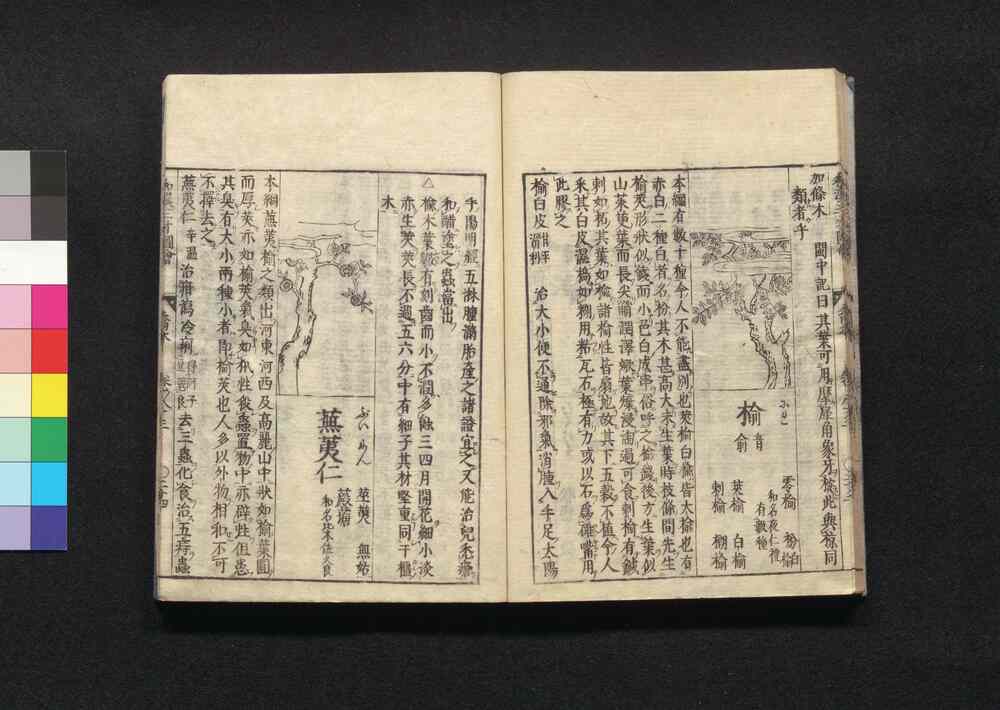 加條木 閩中記曰其葉可用摩犀角象牙按此與椋同
類者乎
榆
音
俞
零榆 枌 白
榆
和名夜仁禮
有數種
莢榆 白榆
刺榆 榔榆
本綱有數十種今人不能盡別也莢榆白榆皆大榆也有
赤白二種白者名枌其木甚高大未生葉時枝條間先生
榆莢形狀似錢而小色白成串俗呼之榆錢後方生葉似
山茱萸葉而長尖䩄潤澤嫩葉煠浸淘過可食刺榆有鍼
刺如柘其葉如榆諸榆性皆扇地故其下五穀不植今人
采其白皮濕搗如糊用粘瓦石極有力或以石爲碓嘴用
此膠之
榆白皮 甘平
滑利 治大小便不通除邪氣消腫入手足太陽
手陽明經五淋腫滿胎產之諸證宜之又能治兒禿瘡
和醋塗之蟲當出
△榆木葉有刻齒而小不潤多蝕三四月開花細小淡
赤生莢莢長不過五六分中有細子其材堅重同于櫃
木
ぶいじん
蕪荑仁
莖荑 無姑
䕋蓎
本綱蕪荑榆之類出河東河西及高麗山中狀如榆葉圓
而厚莢亦如榆莢氣臭如𤜼性殺蟲置物中亦辟蛀但患
其臭有大小兩種小者即榆莢也人多以外物相和不可
不擇去之
蕪荑仁 辛溫 治雜瀉冷痢 得訶子
豆蔻良 去三蟲化食治五痔蟲